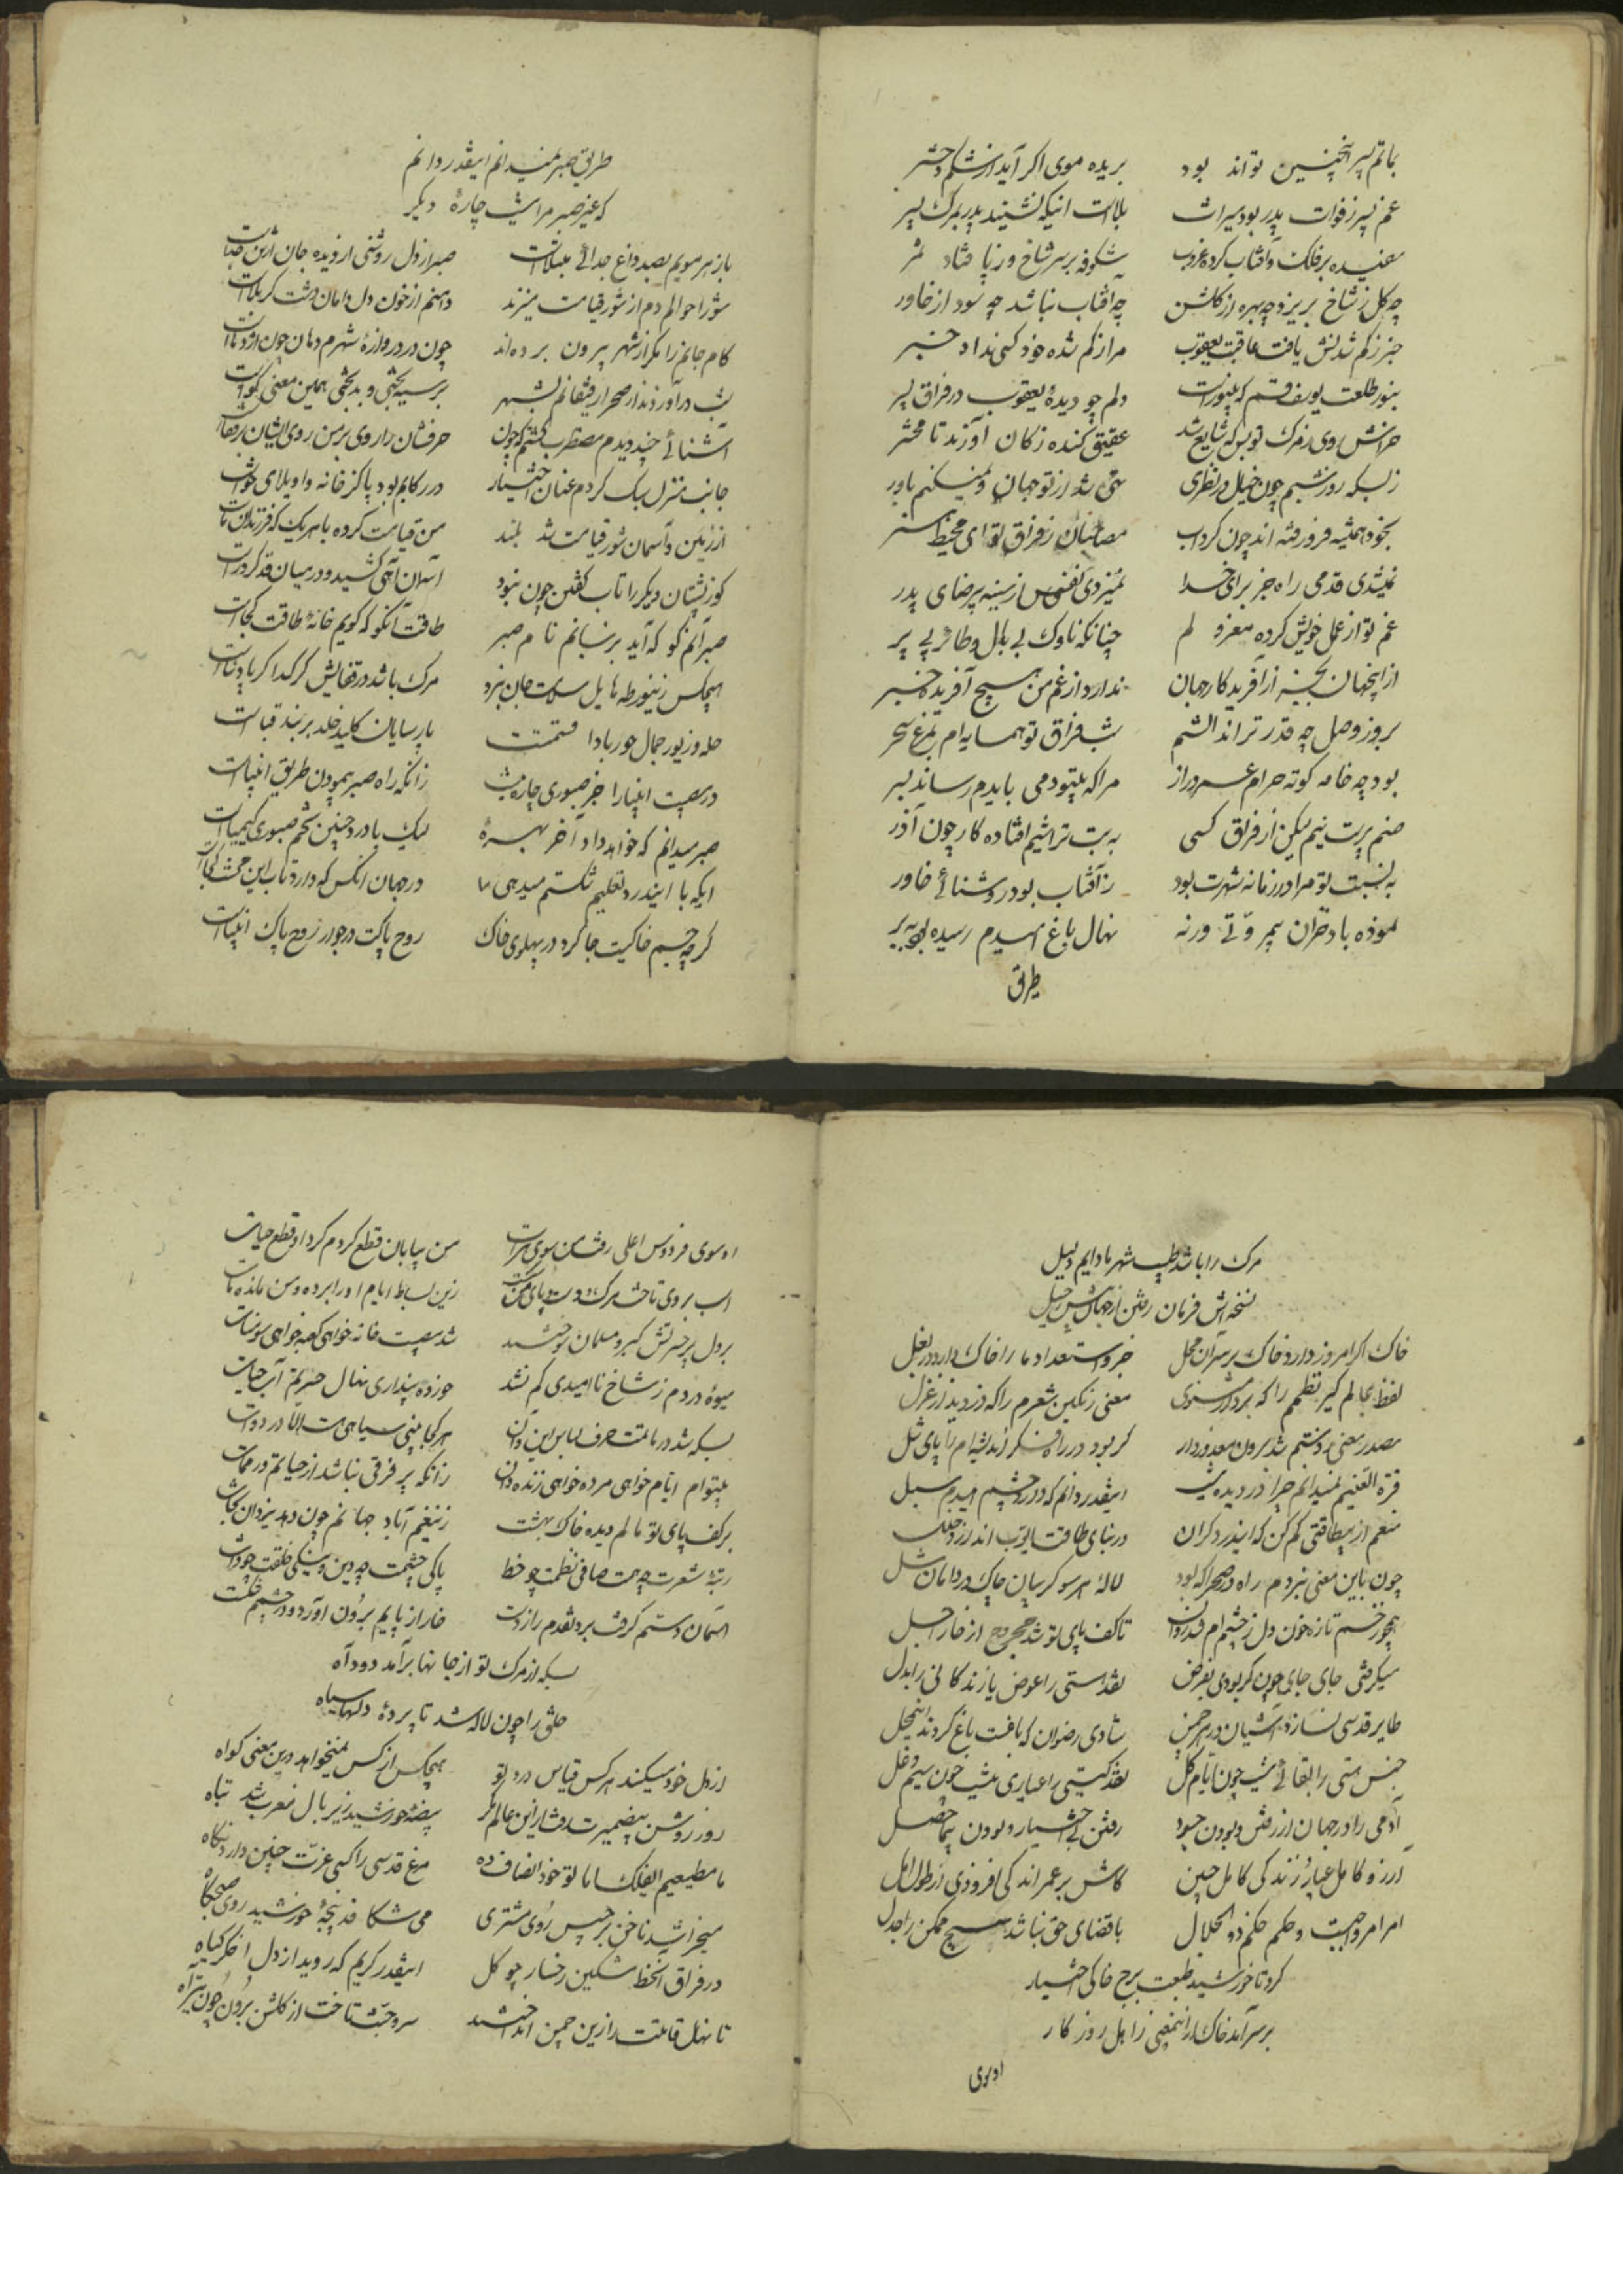 بماتم پسر اینچنین تواند بود
بریده موی اگر آید از شکم دختر
غم پسر ز فوات پدر بود میراث
بلاست اینکه نشیند پدر بمرگ پسر
سفیده بر فلک و آفتاب کرده غروب
شکوفه بر سر شاخ و ز پا فتاد ثمر
چه گل ز شاخ بریزد چه بهره از گلشن
چه آفتاب نباشد چه سود از خاور
خبر ز گم شدنش یافت عاقبت یعقوب
مرا ز گم شده خود کسی نداد خبر
بنور طلعت یوسف قسم که بی نورست
دلم چو دیده یعقوب در فراق پسر
خراش روی ز مرگ تو بسکه شایع شد
عقیق کنده ز کان آورند تا محشر
ز بسکه روز و شبم چون خیال در نظری
تهی شد از تو جهان و نمیکنم باور
بخود همیشه فرو رفته اند چون گرداب
مصاحبان ز فراق تو ای محیط هنر
نمیشدی قدمی راه جز برای خدا
نمیزدی نفسی از سینه بی رضای پدر
غم تو از عمل خویش کرده معزولم
چنانکه ناوک بی بال و طائر بی پر
از اینجهان بجز از آفریدگار جهان
ندارد از غم من هیچ آفریده خبر
بروز وصل چه قدر ترا ندانستم
شب فراق تو همسایه ام بمرغ سحر
بود چه خامه کوته حرام عمر دراز
مرا که بیتو دمی بایدم رساند بسر
صنم پرست نیم لیکن از فراق کسی
به بت تراشیم افتاده کار چون آذر
به نسبت تو مرا در زمانه شهرت بود
ز آفتاب بود روشنائی خاور
نموده باد خزان بیمروتی ورنه
نهال باغ امیدم رسیده بود ببر
طریق
طریق صبر نمیدانم اینقدر دانم
که غیر صبر مرا نیست چاره دیگر
باز هر مویم بصد داغ جدائی مبتلاست
صبر از دل روشنی از دیده جان از تن جداست
شور احوالم دم از شور قیامت میزند
دامنم از خون دل دامان دشت کربلاست
کام جانم را مگر از شهر بیرون برده اند
چون در دروازه شهرم دهان چون اژدهاست
شب در آوردند از صحرا رفیقانم بشهر
بر سیه بختی و بدبختی همین معنی گواست
آشنائی چند دیدم مضطرب گشتم که چون
حرفشان را روی بر من روی ایشان بر قفاست
جانب منزل سبک کردم عنان اختیار
در رکابم بود پا کز خانه واویلای خواست
از زمین و آسمان شور قیامت شد بلند
من قیامت کرده با هر یک که فرزندان کجاست
کوز ایشان دیگر را تاب گفتن چون نبود
آسمان آهی کشید و در میان قد کرد راست
صبر آنم گو که آید بر زبانم نام صبر
طاقت آنکو که گویم خانه طاقت کجاست
هیچکس زینورطه هایل سلامت جان نبرد
مرگ باشد در قفایش گر گدا گر پادشاست
حله و زیور جمال حور بادا قسمتت
پارسایان کلید خلد بر بند قباست
در مصیبت انبیا را جز صبوری چاره نیست
زانکه راه صبر پیمودن طریق انبیاست
صبر میدانم که خواهد داد آخر بهره
لیک با درد چنین تخم صبوری کیمیاست
ایکه با ایندرد تعلیم شکستم میدهی
در جهان آنکس که دارد تاب این محنت کجاست
گرچه جسم خاکیت جا کرد در پهلوی خاک
روح پاکت در جوار روح پاک انبیاست
مرگ را باشد طبیب شهر ما دایم دلیل
نسخه اش فرمان رفتن از جهان بس رحیل
خاک اگر امروز دارد خاک بر سر آن محل
جز و استعداد ما را خاک دارد در بغل
لفظ عالمگیر نظمم را که برد از مثنوی
معنی رنگین شعرم را که دزدید از غزل
مصدر معنی ز دستم شد برون معذور دار
گر بود در راه فکر اندیشه ام را پای شل
قرة العینم نمیدانم چرا در دیده نیست
اینقدر دانم که دارد چشم امیدم سبل
منعم از بیطاقتی کم کن که ایندرد گران
در بنای طاقت ایوب اندازد خلل
چون باین معنی نبردم راه در صحرا که بود
لاله هر سو گریبان چاک در دامان تل
همچو زخم تازه خون دل ز چشمم شد روان
تا کف پای تو شد مجروح از خار اجل
میگرفتی جای جای چون گر بودی بفرض
نقد هستی را عوض یا زندگانی را بدل
طایر قدسی نسازد آشیان در هر چمن
شادی رضوان که باغت باغ کردند اینمحل
جنس هستی را بقائی نیست چون ایام گل
نقد گیتی را عیاری نیست چون سیم دغل
آدمی را در جهان از رفتن و بودن چه سود
رفتن بی اختیار و بودن بیماحصل
آرزو کامل عیار و زندگی کامل چنین
کاش بر عمر اندکی افزودی از طول امل
امر امر واجبست و حکم حکم ذو الجلال
با قضای حق نباشد هیچ ممکن را جدل
کرد تا خورشید طلعت برج خاکی اختیار
بر سر آمد خاک ازینمعنی ز اهل روزگار
او سوی
او سوی فردوس اعلی رفت من سوی هرات
من بیابان قطع کردم کرد او قطع حیات
اسب بر وی تاخت مرگ و دست و پای من شکست
زین بساط ایام او را برده و من مانده مات
بر دل پر حسرتش گبر و مسلمان سوختند
شد مصیبت خانه خواهی کعبه خواهی سومنات
میوه دردم ز شاخ ناامیدی کم نشد
خورده پنداری نهال حسرتم آب حیات
بسکه شد در ماتمت صرف لباس این و آن
هر کجا بینی سیاهی هست الا در دوات
بیتو ام ایام خواهی مرده خواهی زنده دان
زانکه پر فرقی نباشد از حیاتم در ممات
بر کف پای تو مالم دیده خاک بهشت
زینغم آباد جهانم چون دهد یزدان نجات
رتبه شعرت چه هست صافی نظمت چو خط
پاکی چشمت چه دین و نیکی خلقت چو ذات
آسمان دستم گرفت برد نقدم را ز دست
خار از پایم برون آورد و در چشمم شکست
بسکه از مرگ تو از جانها برآمد دود آه
خلق را چون لاله شد تا پرده دلها سیاه
از دل خود میکند هر کس قیاس درد تو
هیچکس از کس نمیخواهد درین معنی گواه
روز روشن بیضمیرت رفت ازین عالم مگر
بیضه خورشید زیر بال مغرب شد تباه
ما مطیعیم ایفلک اما تو خود انصاف ده
مرغ قدسی را کسی عزت چنین دارد نگاه
میخراشد ناخن برجیس روی مشتری
می شکافد پنجه خورشید روی صبحگاه
در فراق آنخط مشکین رخسار چو گل
اینقدر گریم که روید از دل اخگر گیاه
تا نهال قامتت را زین چمن انداختند
سرو جنت تاخت از گلشن برون چون تیر آه